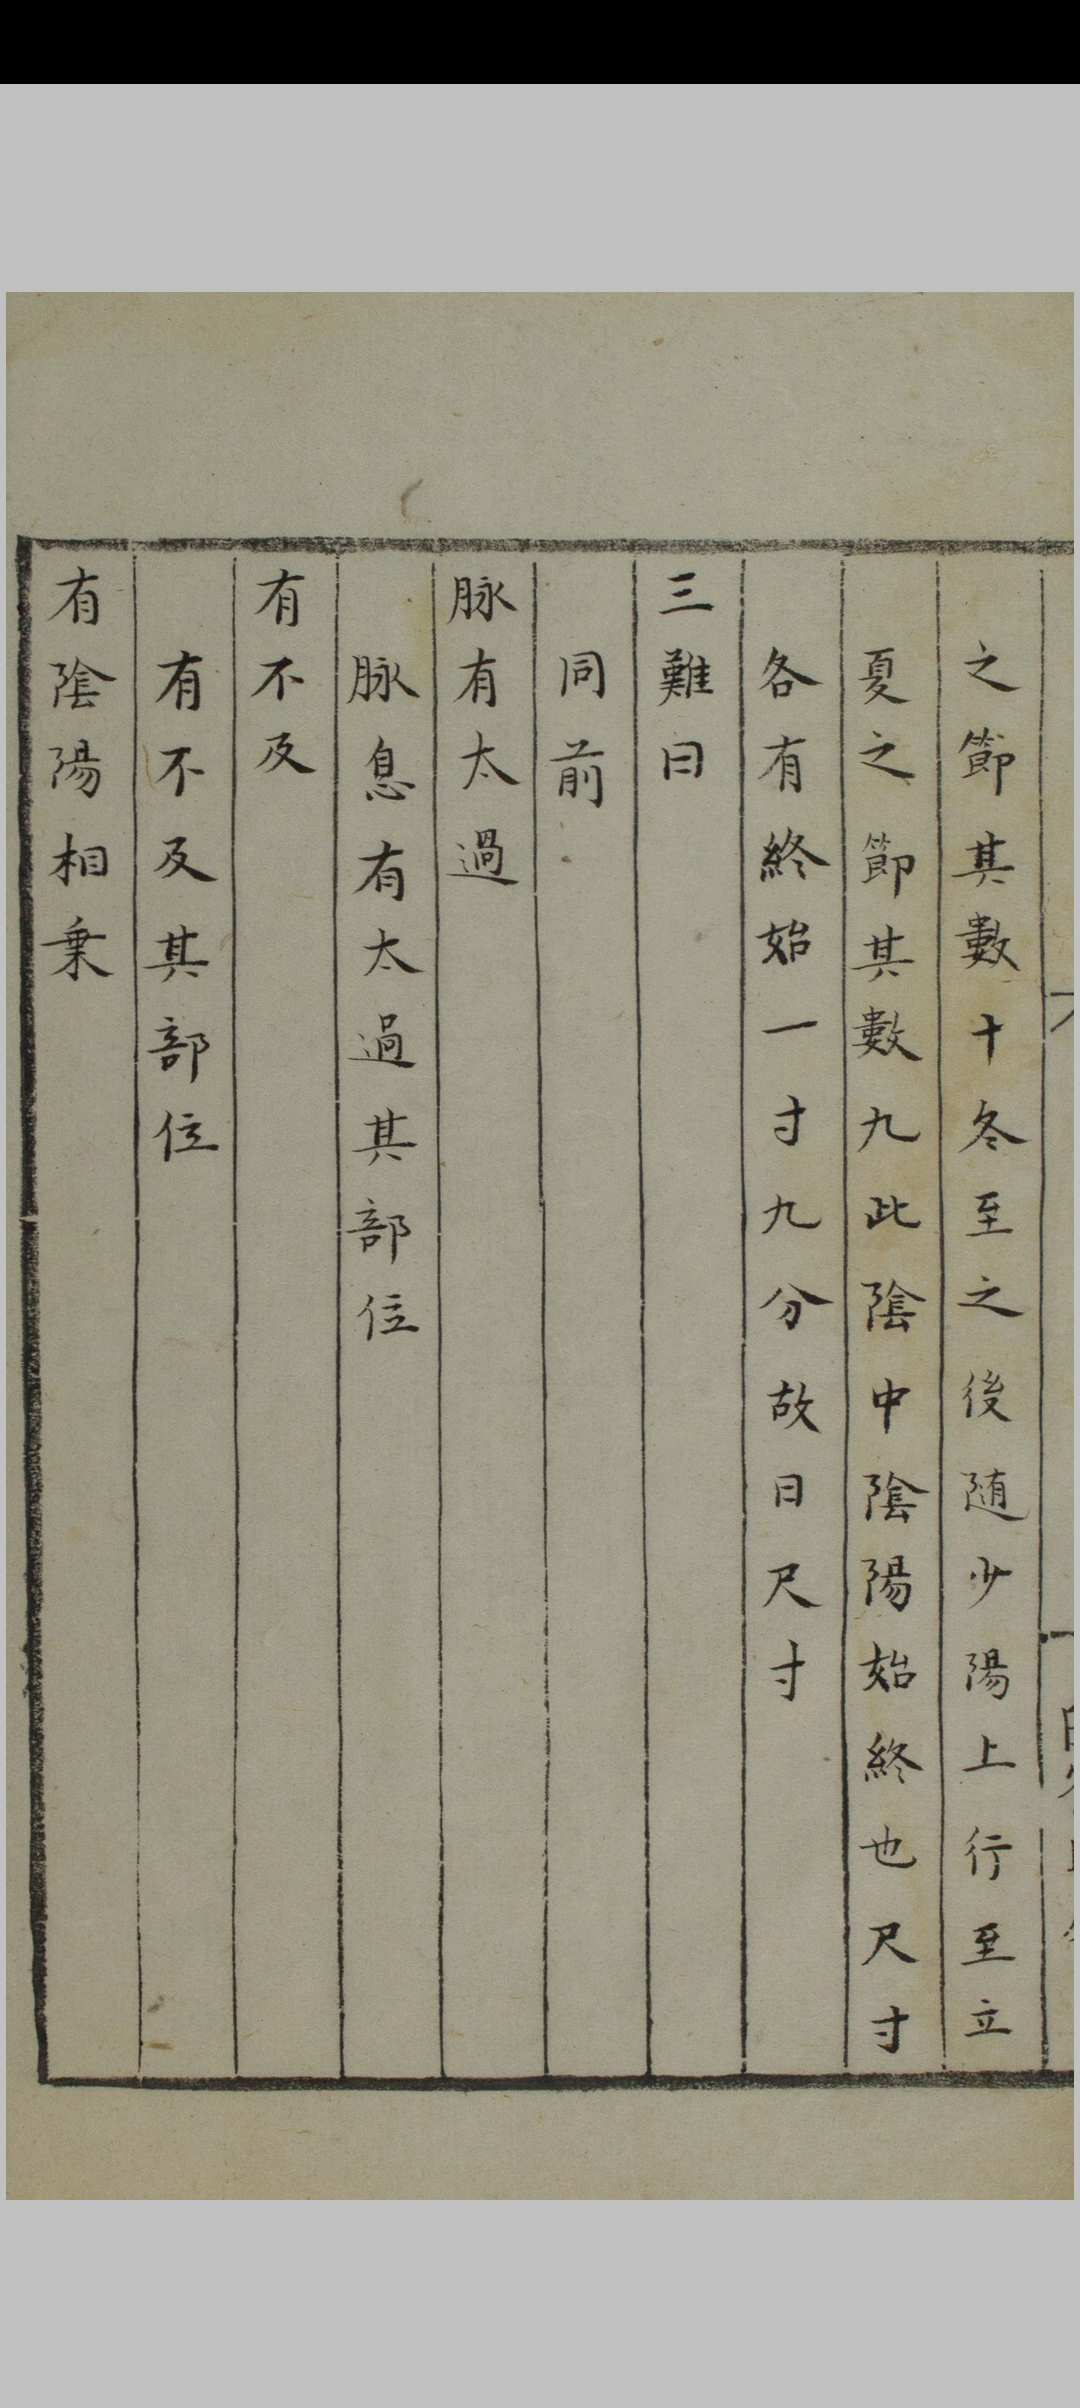 之節其數十冬至之後随少陽上行至立
夏之節其數九此陰中陰陽始終也尺寸
各有終始一寸九分故曰尺寸
三難曰
同前
脉有太過
脉息有太過其部位
有不及
有不及其部位
有陰陽相乗